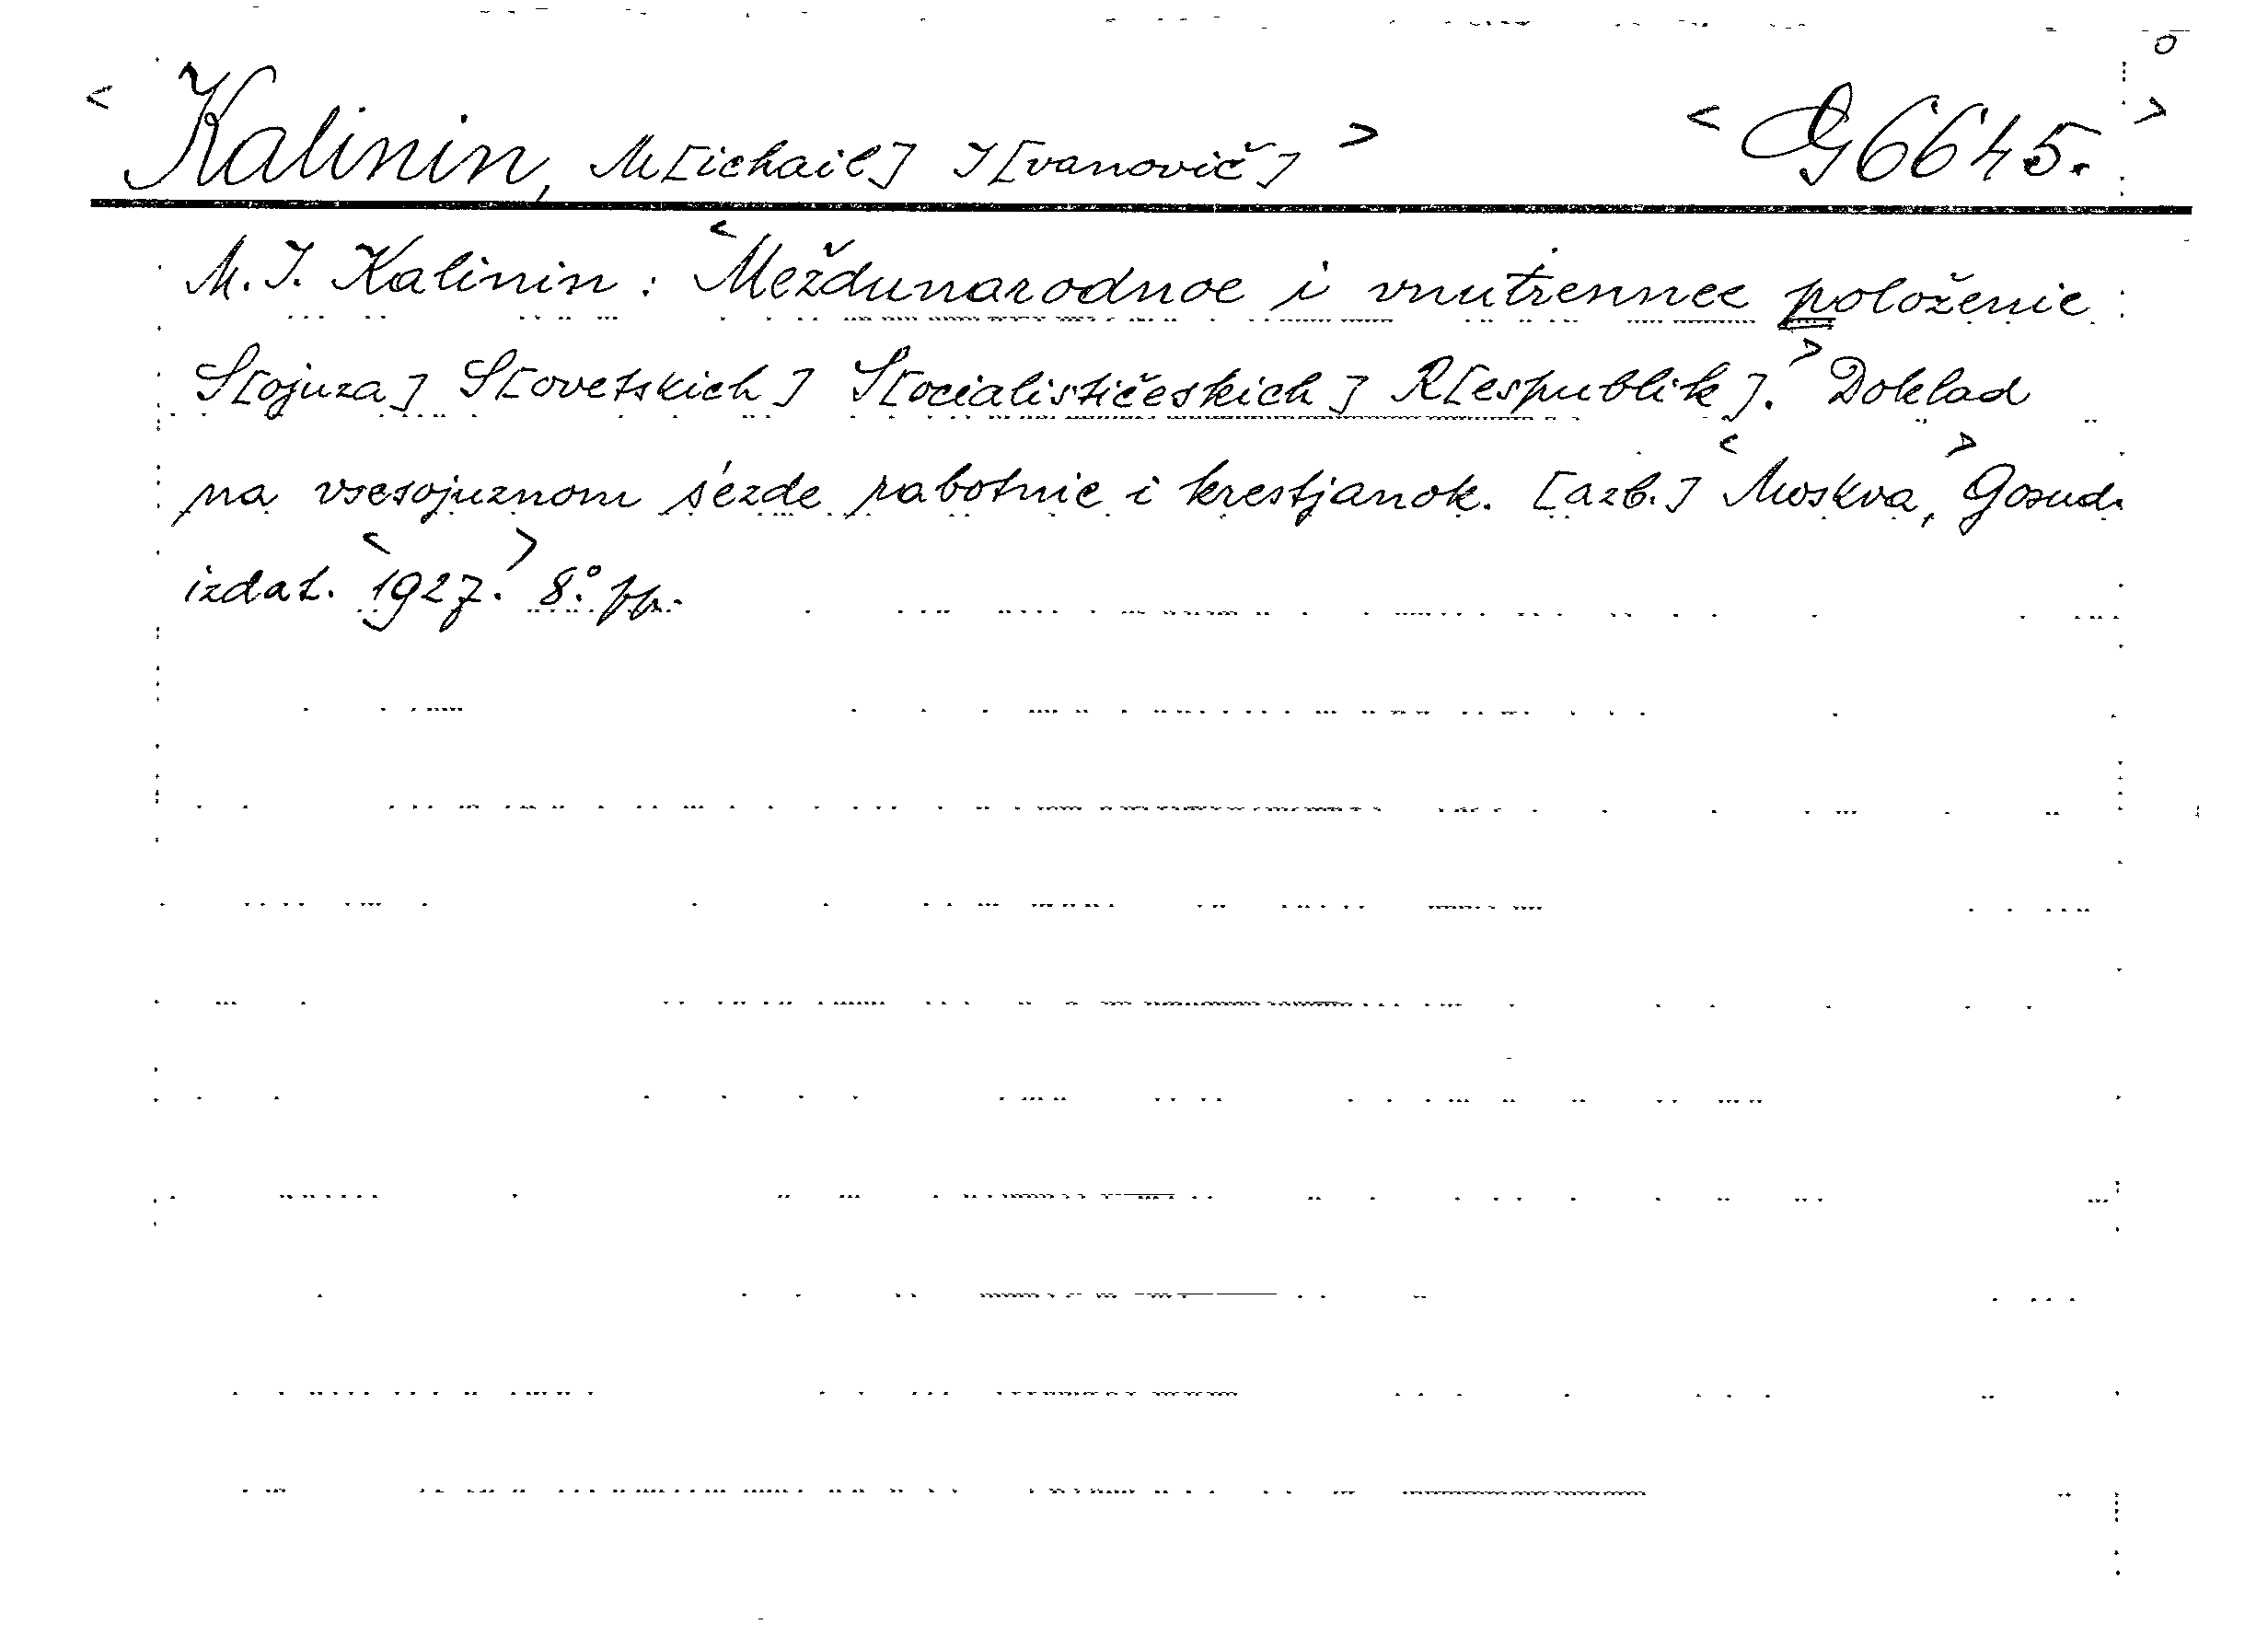 < Kalinin, M[ichail] I[vanovič] > < G 6645. >
M. I. Kalinin : < Meždunarodnoe i vnutrennee položenie
S[ojuza] S[ovetskich] S[ocialističeskich] R[espublik]. > Doklad
na vsesojuznom s'ezde rabotnic i krestjanok. [azb.] < Moskva, > Gosud.
izdat. < 1927. > 8°. pp.